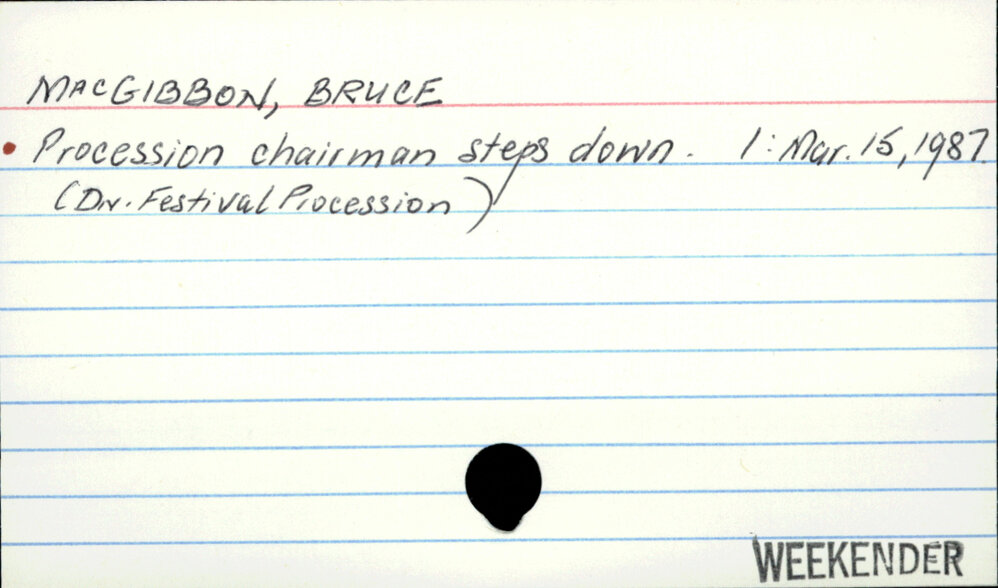 MACGIBBON, BRUCE
Procession chairman steps down. 1: Mar. 15, 1987.
(Div. Festival Procession)
WEEKENDER